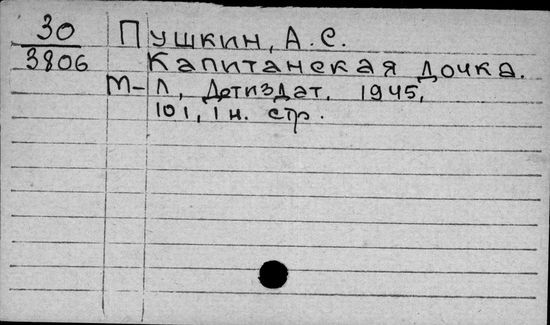 30 Пушкин, А.С.
3806 Капитанская дочка.
М-Л, Детиздат, 1945,
101, 1 н. стр.